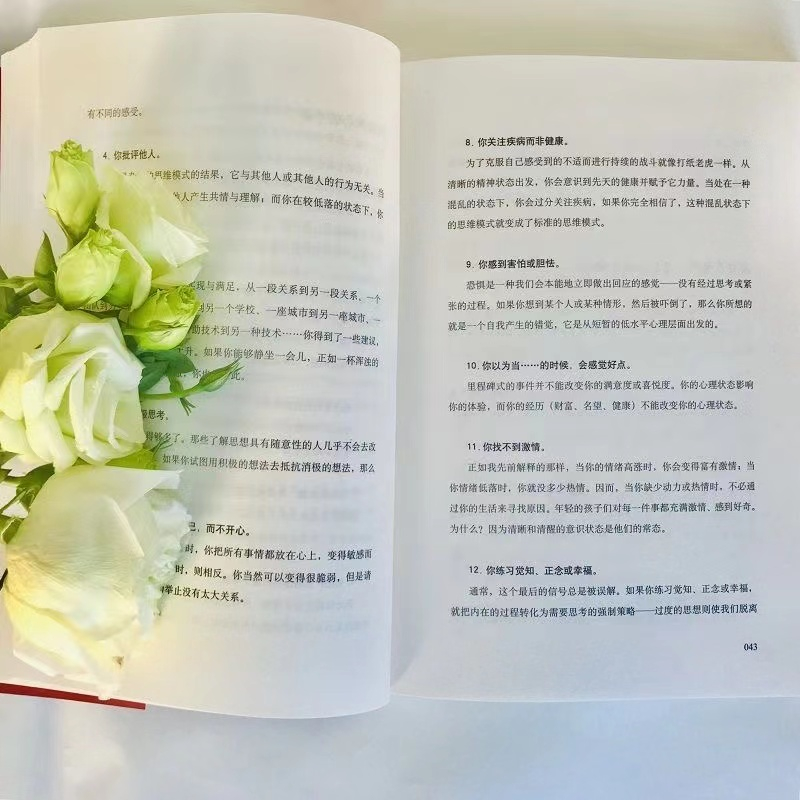 有不同的感受。
4. 你批评他人。
的思维模式的结果，它与其他人或其他人的行为无关。当
他人产生共情与理解；而你在较低落的状态下，你
现与满足，从一段关系到另一段关系、一个
到另一个学校、一座城市到另一座城市、一
助技术到另一种技术……你得到了一些建议，
升。如果你能够静坐一会儿，正如一杯浑浊的
此。
思考。
得够多了。那些了解思想具有随意性的人几乎不会去改
如果你试图用积极的想法去抵抗消极的想法，那么
己，而不开心。
时，你把所有事情都放在心上，变得敏感而
时，则相反。你当然可以变得很脆弱，但是请
举止没有太大关系。
8. 你关注疾病而非健康。
为了克服自己感受到的不适而进行持续的战斗就像打纸老虎一样。从
清晰的精神状态出发，你会意识到先天的健康并赋予它力量。当处在一种
混乱的状态下，你会过分关注疾病，如果你完全相信了，这种混乱状态下
的思维模式就变成了标准的思维模式。
9. 你感到害怕或胆怯。
恐惧是一种我们会本能地立即做出回应的感觉——没有经过思考或紧
张的过程。如果你想到某个人或某种情形，然后被吓倒了，那么你所想的
就是一个自我产生的错觉，它是从短暂的低水平心理层面出发的。
10. 你以为当……的时候，会感觉好点。
里程碑式的事件并不能改变你的满意度或喜悦度。你的心理状态影响
你的体验，而你的经历（财富、名望、健康）不能改变你的心理状态。
11. 你找不到激情。
正如我先前解释的那样，当你的情绪高涨时，你会变得富有激情；当
你情绪低落时，你就没多少热情。因而，当你缺少动力或热情时，不必通
过你的生活来寻找原因。年轻的孩子们对每一件事都充满激情、感到好奇。
为什么？因为清晰和清醒的意识状态是他们的常态。
12. 你练习觉知、正念或幸福。
通常，这个最后的信号总是被误解。如果你练习觉知、正念或幸福，
就把内在的过程转化为需要思考的强制策略——过度的思想则使我们脱离
043